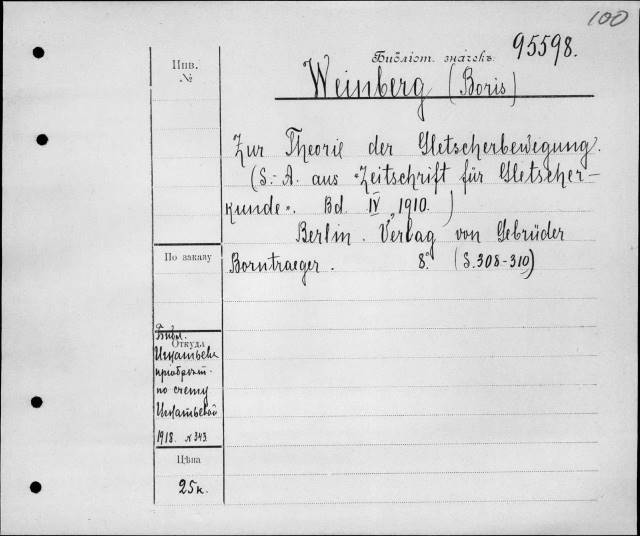 100
Инв.
№
Библіот. значекъ 95598.
Weinberg (Boris)
Zur Theorie der Gletscherbewegung.
(S.-A. aus "Zeitschrift für Gletscher-
kunde". Bd. IV, 1910.)
Berlin. Verlag von Gebrüder
Borntraeger. 8° (S. 308-310)
По заказу
Откуда
Библ.
Игнатьева
пріобрѣт.
по счету
Игнатьевой
1918. № 343.
Цѣна
25 к.